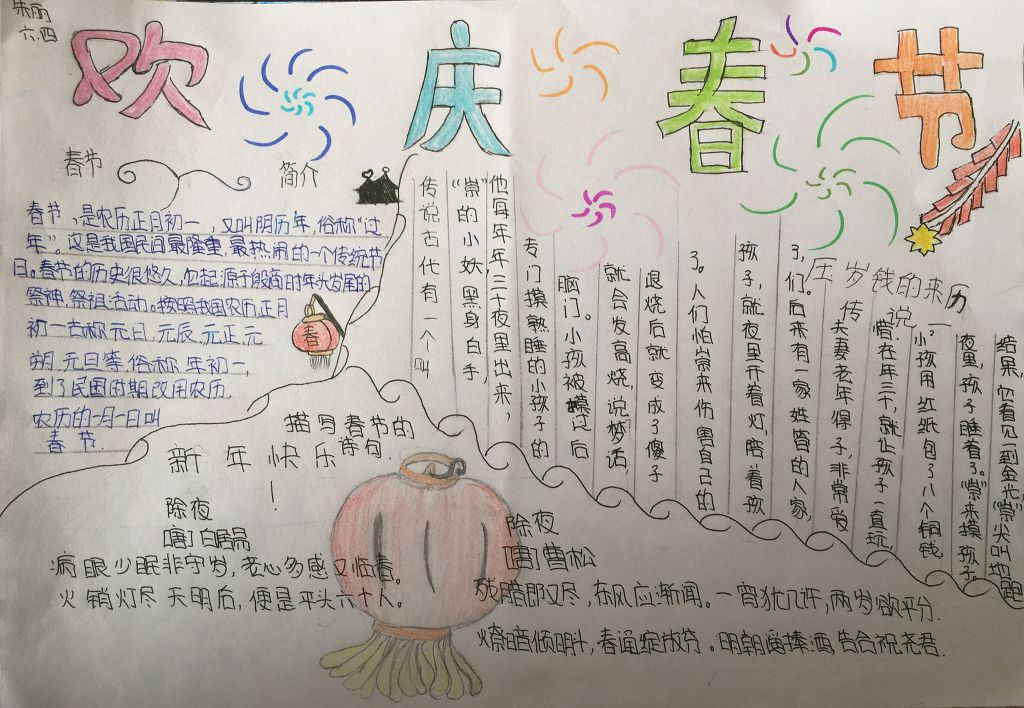 朱丽
六.四
欢庆春节
春节 简介
春节、是农历正月初一,又叫阴历年,俗称“过
年”,这是我国民间最隆重,最热闹的一个传统节
日。春节的历史很悠久,它起源于殷商时年头岁尾的
祭神,祭祖活动。按照我国农历,正月
初一古称元日,元辰,元正,元
朔,元旦等,俗称年初一,
到了民国时期改用农历,
农历的一月一日叫
春节.
春
压岁钱的来历
传说古代有一个叫
“祟”的小妖,黑身白手,
他每年年三十夜里出来,
专门摸熟睡的小孩子的
脑门。小孩被摸过后
就会发高烧,说梦话,
退烧后就变成了傻子
了。人们怕祟来伤害自己的
孩子,就夜里开着灯,陪着孩
子们。后来有一家姓管的人家,
夫妻老年得子,非常爱
惜.在年三十,就让孩子一直玩,
小孩用红纸包了八个铜钱
夜里,孩子睡着了。“祟”来摸孩子。
结果,它看见到金光,“祟”尖叫地跑
描写春节的
诗句.
新年快乐!
除夜
[唐]白居易
病眼少眠非守岁,老心多感又临春。
火销灯尽天明后,便是平头六十人。
除夜
[唐]曹松
残腊即又尽,东风应渐闻。一宵犹几许,两岁欲平分.
燎暗倾时斗,春通绽放芬。明朝遥捧酒,告合祝尧君.